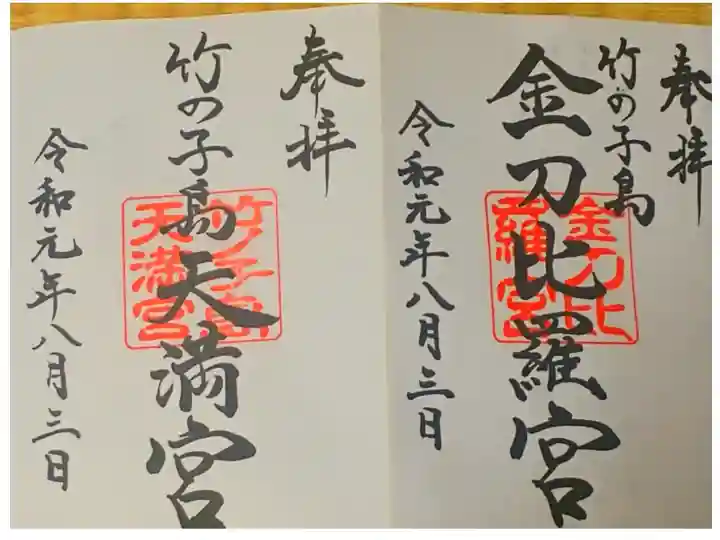 奉拝
竹の子島
金刀比羅宮
金刀比羅宮
令和元年八月三日
奉拝
竹の子島天満宮
竹ノ子島天満宮
令和元年八月三日